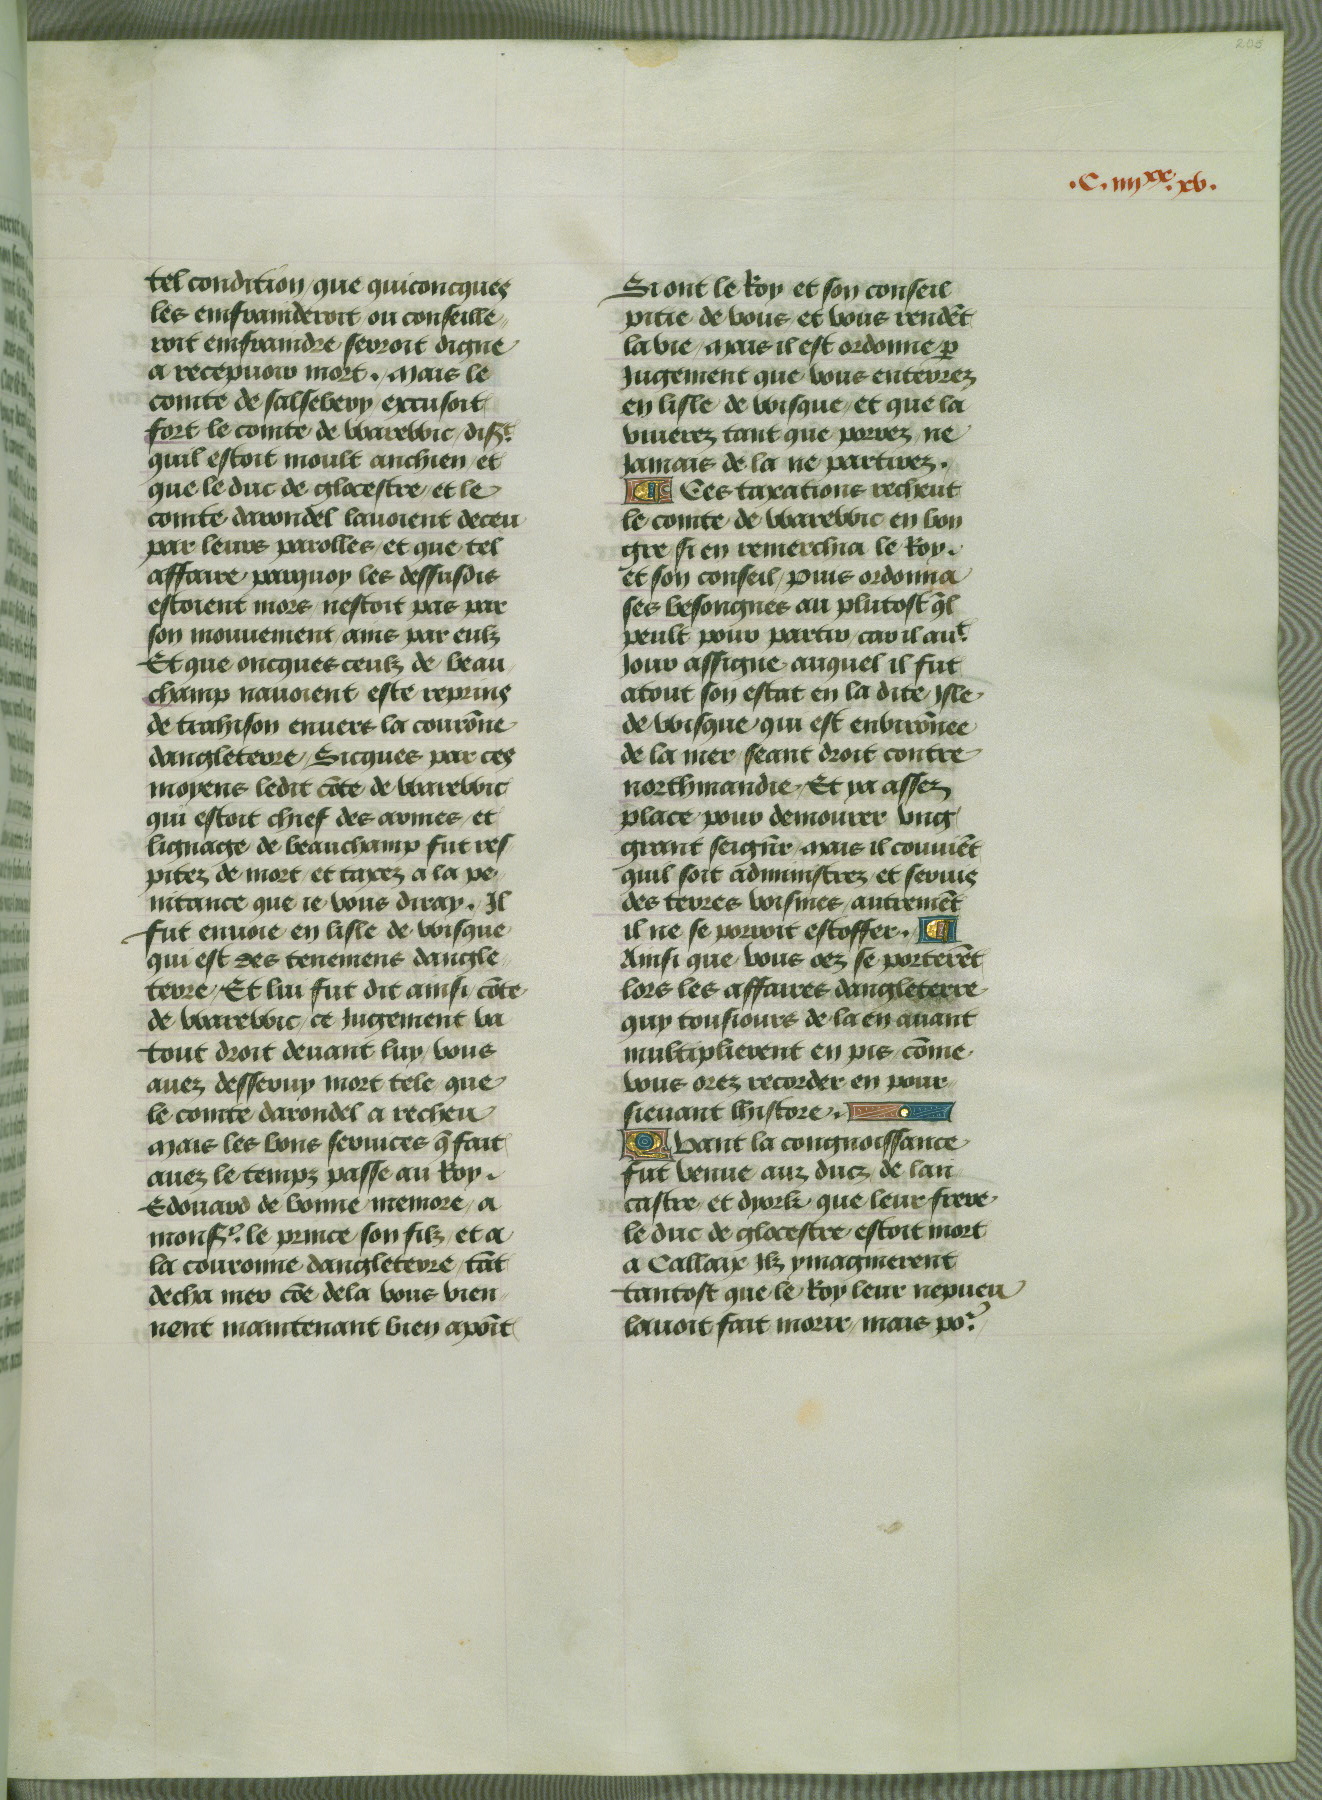 205
.C. iiijxx. xv.
tel condition / que quiconcques
les emfrainderoit ou conseille
roit emfraindre seroit digne
a recepuoir mort. Mais le
comte de salsebery excusoit
fort le comte de warewic / disāt
quil estoit moult anchien / et
que le duc de glocestre / et le
comte darondel lauoient deceu
par leurs parolles / et que tel
affaire parquoy les dessusdis
estoient mors / nestoit pas par
son mouuement / ains par eulz
Et que oncques ceulz de beau
champ nauoient este reprins
de trahison enuers la courōne
dangleterre / Sicques par ces
moyens ledit cōte de warewic
qui estoit chief des armes / et
lignage de beauchamp fut res
pitez de mort et taxez a la pe
nitance que ie vous diray. Il
fut enuoie en lisle de wisque
qui est des tenemens dangle
terre / Et lui fut dit ainsi / cōte
de warewic / ce Jugement va
tout droit deuant luy / vous
auez desseruy mort tele que
le comte darondel a recheu
Mais les bons seruices q̄ fait
auez le tempz passe au Roy.
Edouard de bonne memore / a
monsr. le prince son filz / et a
la couronne dangleterre / tāt
decha mer cōe dela vous vien
nent maintenant bien apoīt
Si ont le Roy et son conseil
pitie de vous / et vous rendēt
la vie / Mais il est ordonne p̄
Jugement que vous entrerez
en lisle de wisque / et que la
viuerez tant que porrez / ne
Jamais de la ne partirez.
Ces taxations recheut
le comte de warewic en bon
gre si en remerchia le Roy.
et son conseil / Puis ordonna
ses besongnes au plutost q̄l
peult pour partir / car il aut
Jour assigne / auquel il fut
atout son estat en la dite Isle
de wisque / qui est enuirōnee
de la mer / seant droit contre
northmandie / Et ya assez
place pour demourer vng
grant seignr̄ / Mais il conuiēt
quil soit administrez et seruis
des terres voisines / autremēt
il ne se porroit estoffer.
Ainsi que vous oez se porterēt
lors les affaires dangleterre
quy tousiours de la en auant
multiplierent en pis / cōme
vous orez recorder en pour
sieuant lhistore.
Quant la congnoissance
fut venue aux ducz de lan
castre / et dyork / que leur frere
le duc de glocestre / estoit mort
a Callaix Ilz ymaginerent
tantost que le Roy leur nepueu
lauoit fait morir / mais por